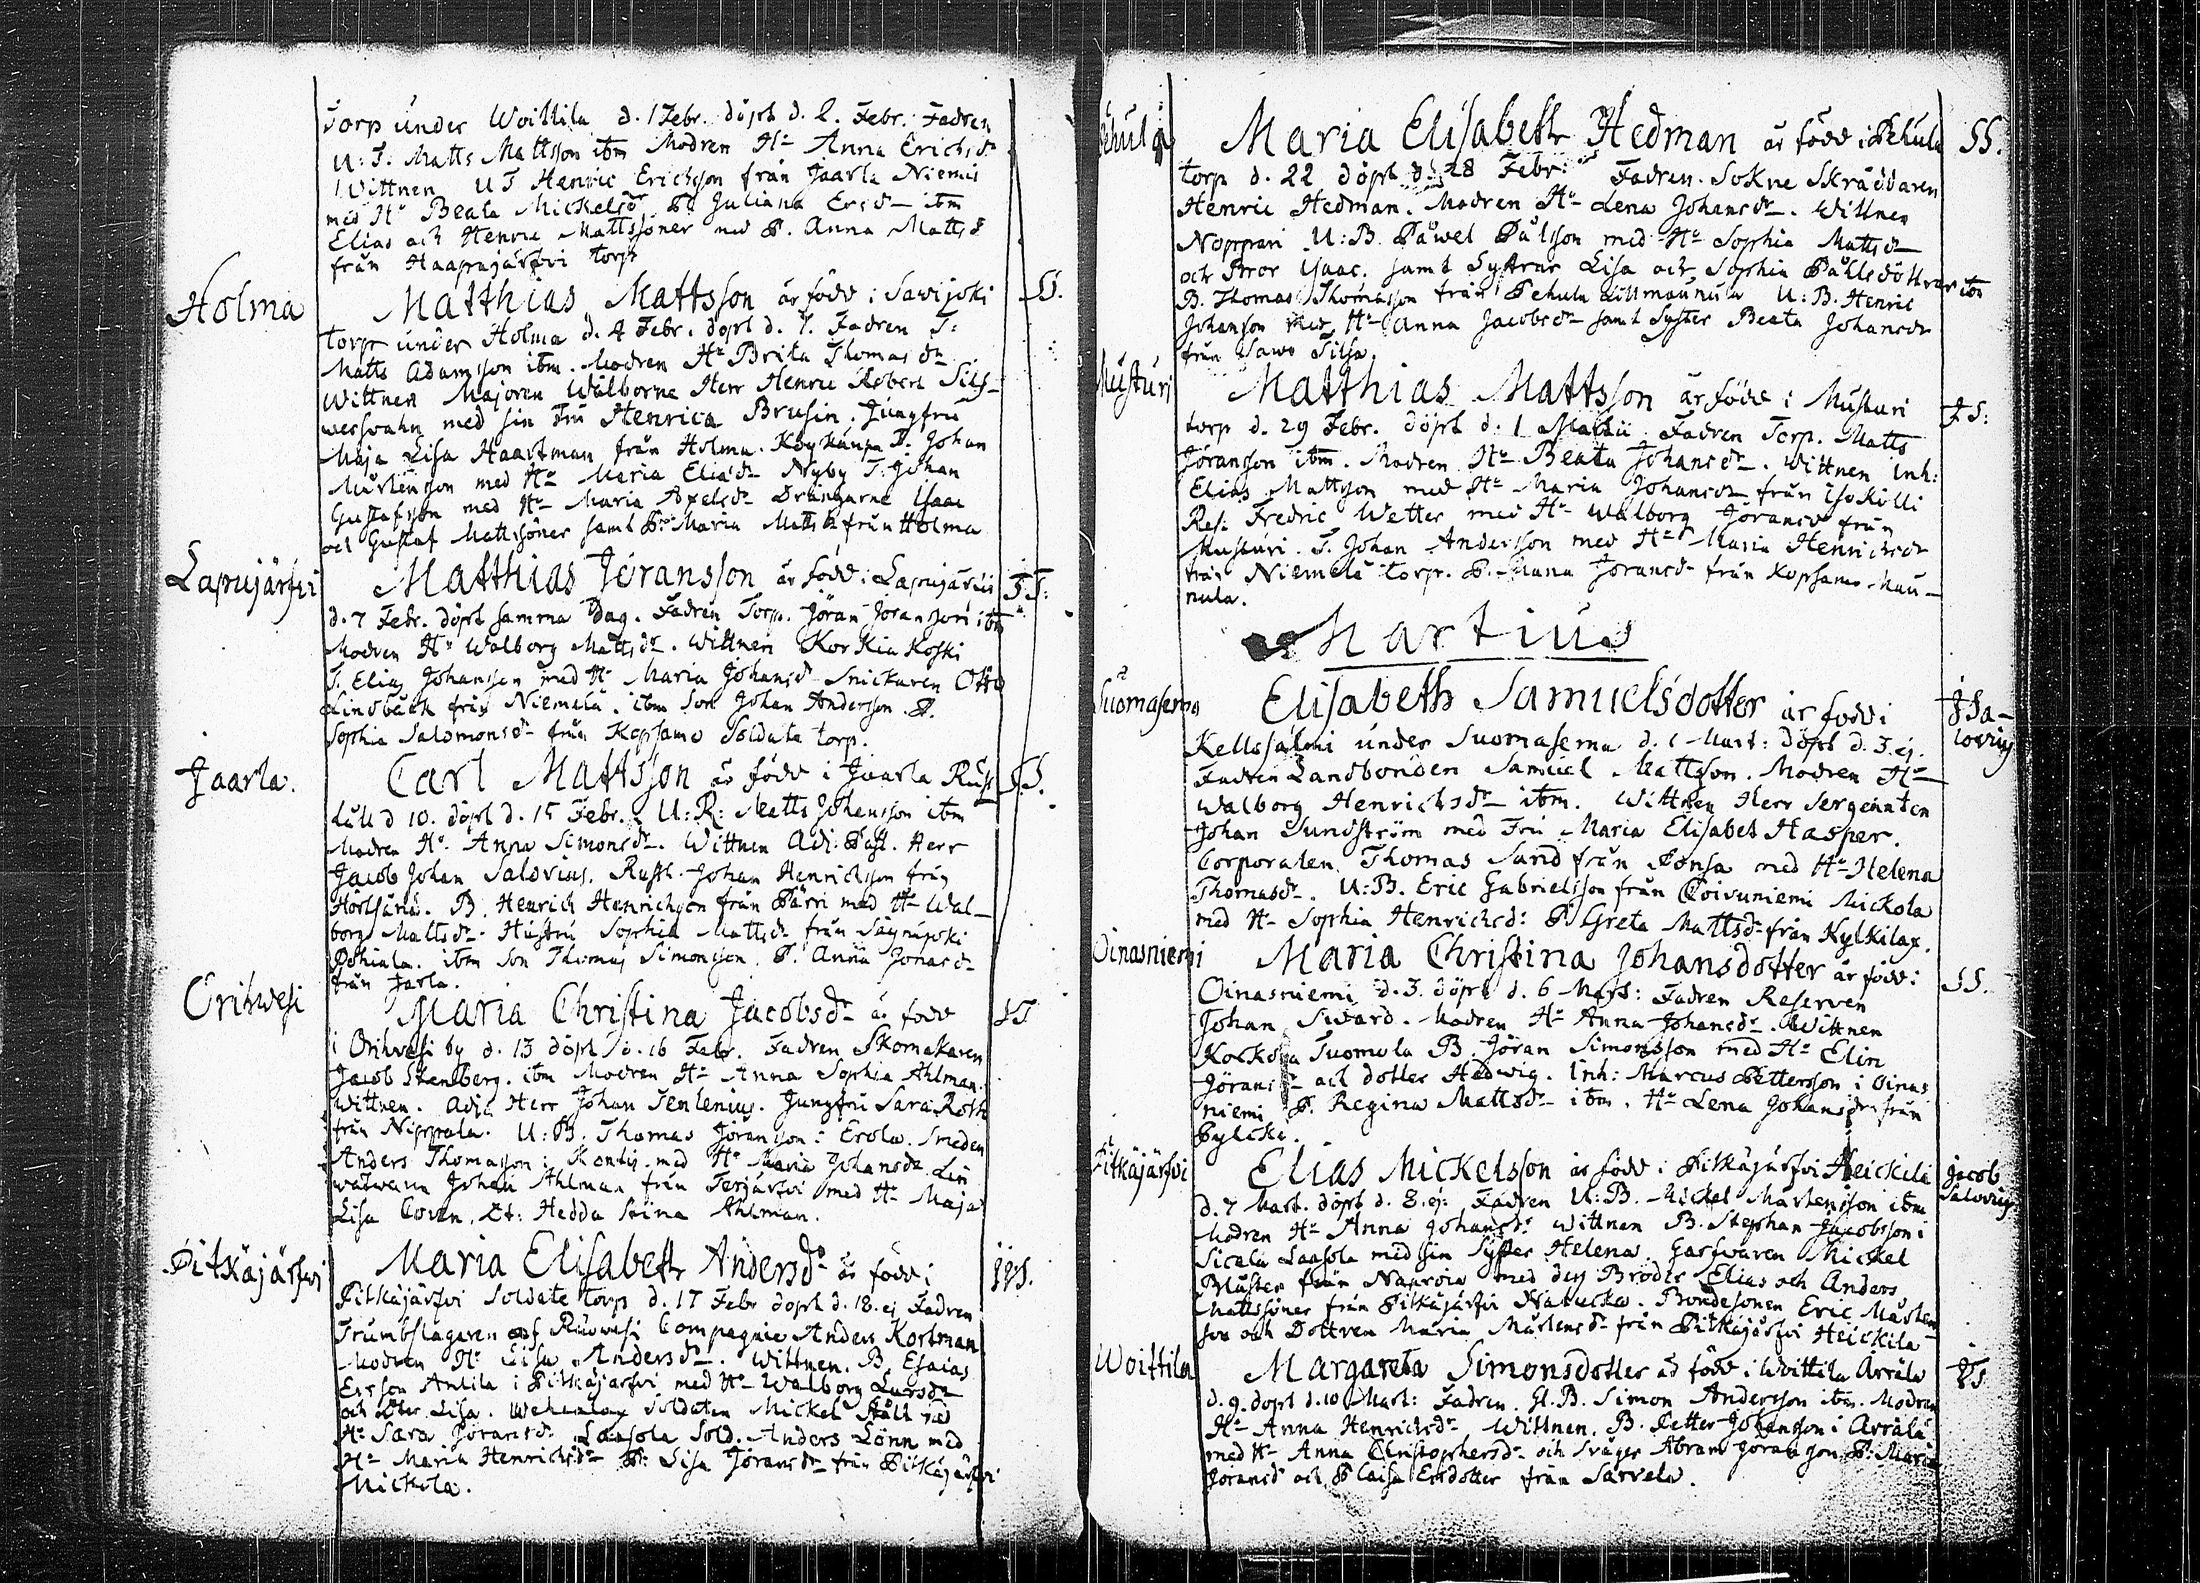 Torp under Woittila d. 1 Febr. döpt d. 2. Febr. Fadren
U: T. Matts Mattsson ibm Modren Hu Anna Erichsdr
Wittnen U T Henric Ericksson från Jaarla Niemis
med Hu Beata Mickelsdr P. Juliana Ersdr ibm
Elias och Henric Mattssöner med P. Anna Mattsd
från Haapajärfvi torp
Holma
Matthias Mattsson är född i Savijoki
SS.
torp under Holma d. 4 Febr. döpt d. 7. Fadren T:
Matts Adamsson ibm. Modren Hu Brita Thomasdr
Wittnen Majoren Wälborne Herr Henric Robert
med sin Fru Henrica Brusin. Jungfru
Maja Lisa Haartman från Holma. T. Johan
Mårtensson med Hu Maria Eliædr Nyby T. Johan
Gustafsson med Hu Maria Axelsdr Drängarne Isaac
och Gustaf Mattssöner samt P. Maria Mattsdr från Holma
Lapujärfvi
Matthias Jöransson är född i Lapujärfvi
d. 7 Febr. döpt samma dag. Fadren Torp. Jöran Jöransson ibm
Modren Hu Walborg Mattsdr. Wittnen Korkiakoski
T. Elias Johansson med Hu Maria Johansdr Snickaren Otto
Lindbäck från Niemelä. ibm Son Johan Andersson P.
Sophia Salomonsdr från Kopsamo Soldate torp.
Jaarla.
Carl Mattsson är född i Jaarla Rust
S.S.
håll d 10. döpt d. 15 Febr. U: R: Matts Johansson ibm
Modren Hu Anna Simonsdr. Wittnen Adj: Past. Herr
Jacob Johan Salovius. Rusth. Johan Henricksson från
B. Henrich Henrichsson från Pärri med Hu Wal-
borg Mattsdr. Hustru Sophia Mattsdr från Säynäjoki
Pohiala. ibm Son Thomas Simonsson. P. Anna Jonasdr
från Jarla.
Orihwesi
Maria Christina Jacobsdr är född
i Orihvesi by d. 13 döpt d. 16 Febr. Fadren Skomakaren
Jacob Stenberg. ibm Modren Hu Anna Sophia Ahlman.
Wittnen. Adj: Herr Johan Tenlenius. Jungfru Sara Roth
från Nippala. U: B. Thomas Jöransson i Erola. Smeden
Anders Thomasson i med Hu Maria Johansdr. Lin
wäfwaren Johan Ahlman från Terjärfvi med Hu Maja
Lisa Hedda Stina Ahlman.
Pitkäjärfwi
Maria Elisabeth Andersdr är född i
JJS.
Pitkäjärfvi Soldate torp d. 17 Febr döpt d. 18. ej Fadren
Trumbslagaren af Ruovesi Compagnie Anders Kortman
Modren Hu Lisa Andersdr. Wittnen. B. Esaias
Ersson Antila i Pitkäjärfvi med Hu Walborg Larsdr
och Lisa. Soldaten Mickel Stålt med
Hu Sara Jöransdr Laasola Sold. Anders Lönn med
Hu Maria Henrichsdr P. Lisa Jöransdr från Pitkäjärfvi
Mickola.
Pehula
Maria Elisabeth Hedman är född i Pehula
SS.
torp d. 22 döpt d. 28 Febr: Fadren. Sokne Skräddaren
Henric Hedman. Modren Hu Lena Johansdr. Wittnen
Noppari U: B. Påwel Pålsson med Hu Sophia Mattsdr
och Bror Isaac. samt Systrar Lisa och Sophia Påhlsdöttrar ibm
B. Thomas Thomasson från Pehula U: B. Henric
Johansson med Hu Anna Jacobsdr samt Syster Beata Johansdr
från Sawo
Musturi
Matthias Mattsson är född i Musturi
JS:
torp d. 29 Febr. döpt d. 1 Martii Fadren Torp. Matts
Jöransson ibm. Modren Hu Beata Johansdr. Wittnen Inh:
Elias Mattsson med Hu Maria Johansdr från Isokilli
Res: Fredric Wetter med Hu Walborg Jöransdr från
Musturi. T. Johan Andersson med Hu Maria Henricsdr
från Niemelä torp. P. Jöransdr från Kopsamo Mau-
nula.
Martius
Suomasema
Elisabeth Samuelsdotter är född i
J Sa-
lovius
Kellosalmi under Suomasema d. 1 Mart: döpt d. 3. ej.
Fadren Landbonden Samuel Mattsson. Modren Hu
Walborg Henrichsdr ibm. Wittnen Herr Sergeanten
Johan Sundström med Fru Maria Elisabet Hasper.
Corporalen Thomas Sund från Ponsa med Hu Helena
Thomasdr. U: B. Eric Gabrielsson från Koivuniemi Mickola
med Hu Sophia Henrichsd: P Greta Mattsdr från Kylkilax.
Oinasniemi
Maria Christina Johansdotter är född i
SS.
Oinasniemi d. 3. döpt d. 6 Mart: Fadren Reserven
Johan Swärd. Modren Hu Anna Johansdr. Wittnen
Suomula B. Jöran Simonsson med Hu Elin
Jöransdr och dotter Hedwig. Inh: Marcus Pettersson i Oinas
niemi P. Regina Mattsdr ibm. Hu Lena Johansdr från
Pitkäjärfvi
Elias Mickelsson är född i Pitkäjärfvi Heickilä
Jacob
Salovius
d. 7 Mart. döpt d. 8. ej. Fadren U: B. Mickel Mårtensson ibm
Modren Hu Anna Johansdr Wittnen B. Stephan Jacobsson i
Laasola med sin Syster Helena. Garfwaren Mickel
från med dess Bröder Elias och Anders
Mattssöner från Pitkäjärfvi Bondesonen Eric Mårten-
son och Dottren Maria Mårtensdr från Pitkäjärfvi Heickilä
Woittila
Margareta Simonsdotter är född i Woittila Arrälä
d. 9. döpt d. 10 Mart: Fadren. Gl. B. Simon Andersson ibm. Modren
Hu Anna Henricsdr Wittnen. B. Petter Johansson i Arrälä
med Hu Anna Christophersdr och Svåger Abram Jöransson. P: Maria
Jöransd och P Caisa Ersdotter från Särvelä.